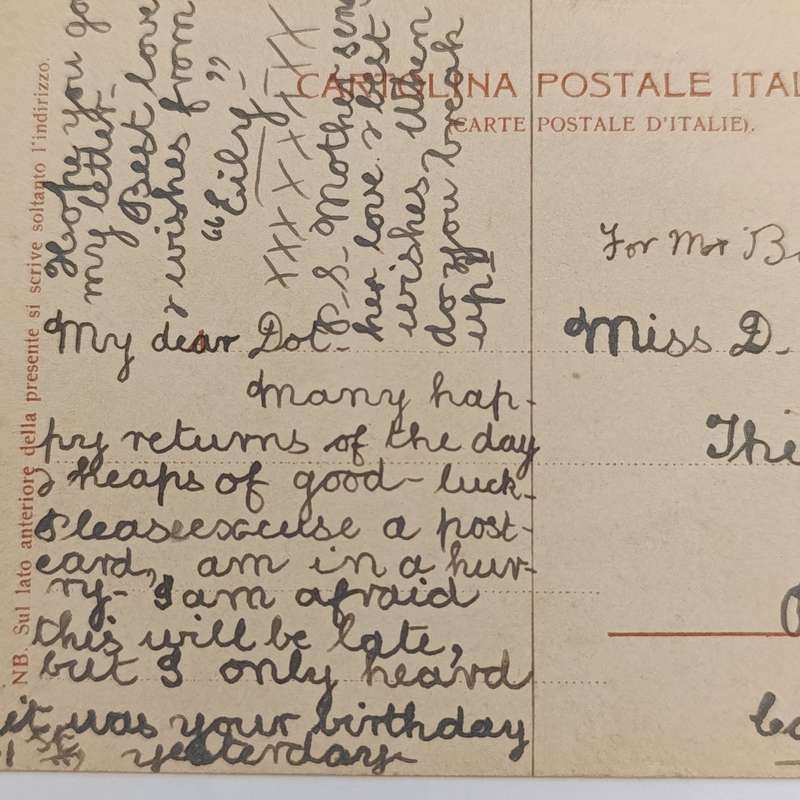 CARTOLINA POSTALE ITAL
(CARTE POSTALE D'ITALIE).
NB. Sul lato anteriore della presente si scrive soltanto l'indirizzo.
My dear Dot-
Many hap-
py returns of the day
& heaps of good-luck-
Please excuse a post-
card, am in a hur-
ry- I am afraid
this will be late,
but I only heard
it was your birthday
yesterday-
Hope you go
my letter-
Best love
& wishes from
"Eily-"
XXX X X X XX
P.S- Mother sen
her love & best
wishes. When
do you break
up-
For Mr B
Miss D.
The